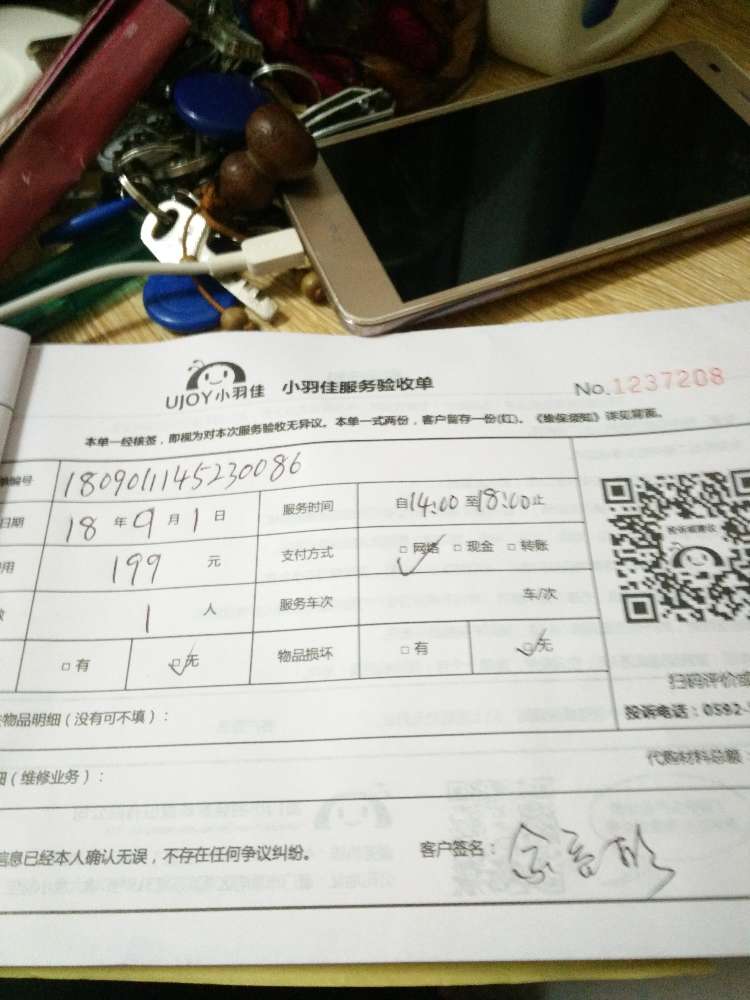 UJOY小羽佳 小羽佳服务验收单 No.1237208
本单一经核签，即视为对本次服务验收无异议。本单一式两份，客户留存一份(红)。《维保须知》详见背面。
编号 180901145230086
日期 18 年 9 月 1 日 服务时间 自14:00至18:00止
用 199 元 支付方式 □ 网络 □ 现金 □ 转账
1 人 服务车次 车/次
□ 有 □ 无 物品损坏 □ 有 □ 无
投诉或建议
扫码评价或
投诉电话：0592-
物品明细（没有可不填）：
（维修业务）： 代购材料总额：
信息已经本人确认无误，不存在任何争议纠纷。 客户签名：